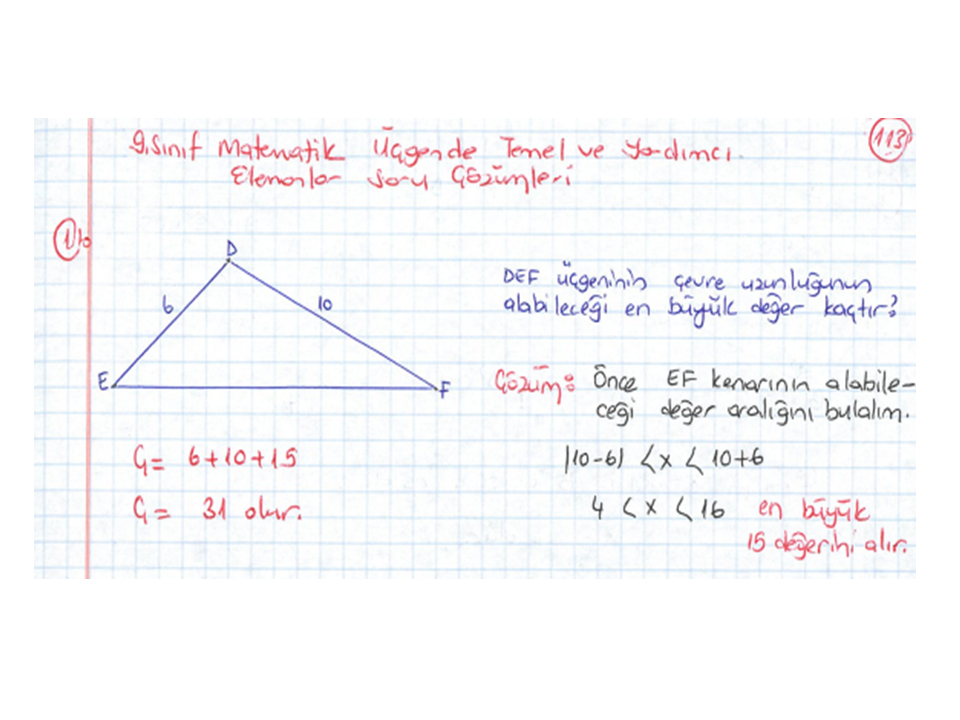 9.Sınıf Matematik Üçgende Temel ve Yardımcı.
Elemanlar Soru Çözümleri
113
1)
D
6
10
E
F
DEF üçgeninin çevre uzunluğunun
alabileceği en büyük değer kaçtır?
Çözüm: Önce EF kenarının alabile-
ceği değer aralığını bulalım.
|10-6| < x < 10+6
4 < x < 16 en büyük
15 değerini alır.
Ç= 6+10+15
Ç= 31 olur.